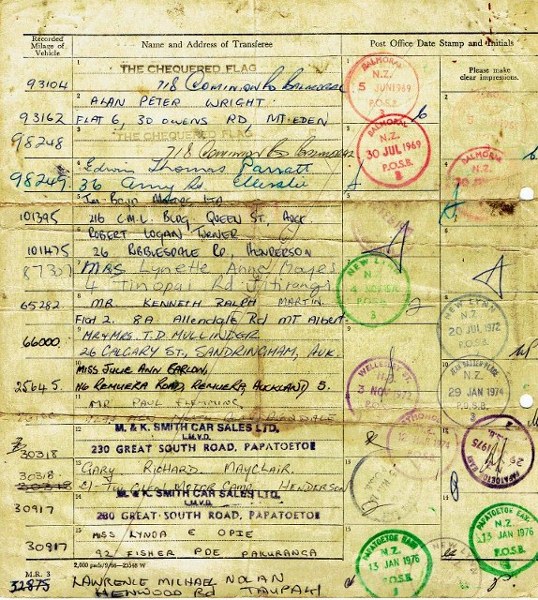 Recorded Milage of Vehicle
Name and Address of Transferee
Post Office Date Stamp and Initials
Please make clear impressions.
1
THE CHEQUERED FLAG
93104
718 Dominion Rd Balmoral
2
ALAN PETER WRIGHT
93162
FLAT 6, 30 OWENS RD MT. EDEN
3
THE CHEQUERED FLAG
98248
4
Edwin Thomas Parratt
98249
36
Rd. Ellerslie
5
LTD
101395
216 C.M.L. BLDG, QUEEN ST, AUCK.
6
ROBERT LOGAN TURNER
101475
26 RIBBLESDALE RD, HENDERSON
7
87307
MRS Lynette Anne Hayes
4 Tinopai Rd Titirangi
8
65282
MR. KENNETH RALPH MARTIN.
FLAT 2. 8A Allendale Rd MT ALBERT
9
66000
MR & MRS. T.D. MULLINDER
26 CALGARY ST., SANDRINGHAM, AUK.
10
MISS JULIE ANN
25645
116 REMUERA ROAD, REMUERA, AUCKLAND 5.
11
MR PAUL FLEMMING
12
M. & K. SMITH CAR SALES LTD.
L.M.V.D.
30318
230 GREAT SOUTH ROAD, PAPATOETOE
13
30318
GARY RICHARD MAYCLAIR
MOTOR CAMP HENDERSON
14
M. & K. SMITH CAR SALES LTD.
L.M.V.D.
30917
230 GREAT SOUTH ROAD, PAPATOETOE
15
MISS LYNDA E OPIE
30917
92 FISHER PDE PAKURANGA
M.R. 3
32875
LAWRENCE MICHAEL NOLAN
HENWOOD RD TAUPAKI
BALMORAL
N.Z.
5 JUN 1969
P.O.S.B.
BALMORAL
N.Z.
30 JUL 1969
P.O.S.B.
3
BALMORAL
N.Z.
NEW LYNN
N.Z.
3
NEW LYNN
N.Z.
20 JUL 1972
P.O.S.B.
WELLESLEY ST.
N.Z.
3 NOV 1972
N.Z.
29 JAN 1974
P.O.S.B.
1975
PAPATOETOE EAST
N.Z.
13 JAN 1976
P.O.S.B.
PAPATOETOE EAST
N.Z.
13 JAN 1976
P.O.S.B.